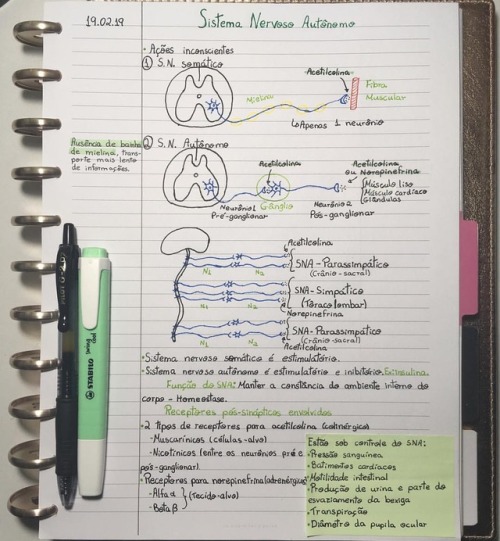 19.02.19
Sistema Nervoso Autônomo
• Ações inconscientes
① S.N. somático
Acetilcolina
Fibra
Muscular
Mielina
↳ Apenas 1 neurônio
Ausência de banha
de mielina, trans-
porte mais lento
de informações.
② S.N. Autônomo
Acetilcolina
Acetilcolina
ou Norepinefrina
Músculo liso
Músculo cardíaco
Glândulas
Neurônio 1
Pré-ganglionar
Gânglio
Neurônio 2
Pós-ganglionar
Acetilcolina
SNA-Parassimpático
(Crânio-sacral)
N1
N2
SNA-Simpático
(Toracolombar)
N1
N2
Norepinefrina
SNA-Parassimpático
(Crânio-sacral)
N1
N2
Acetilcolina
• Sistema nervoso somático é estimulatório.
• Sistema nervoso autônomo é estimulatório e inibitório. Ex: insulina.
Função do SNA: Manter a constância do ambiente interno do
corpo - Homeostase.
Receptores pós-sinápticos envolvidos
• 2 tipos de receptores para acetilcolina (colinérgicos)
- Muscarínicos (células-alvo)
- Nicotínicos (entre os neurônios pré e
pós-ganglionar).
• Receptores para norepinefrina (adrenérgico)
- Alfa α
- Beta β
(tecido-alvo)
Estão sob controle do SNA:
• Pressão sanguínea
• Batimentos cardíacos
• Motilidade intestinal
• Produção de urina e parte do
esvaziamento da bexiga
• Transpiração
• Diâmetro da pupila ocular
STABILO
swing
cool